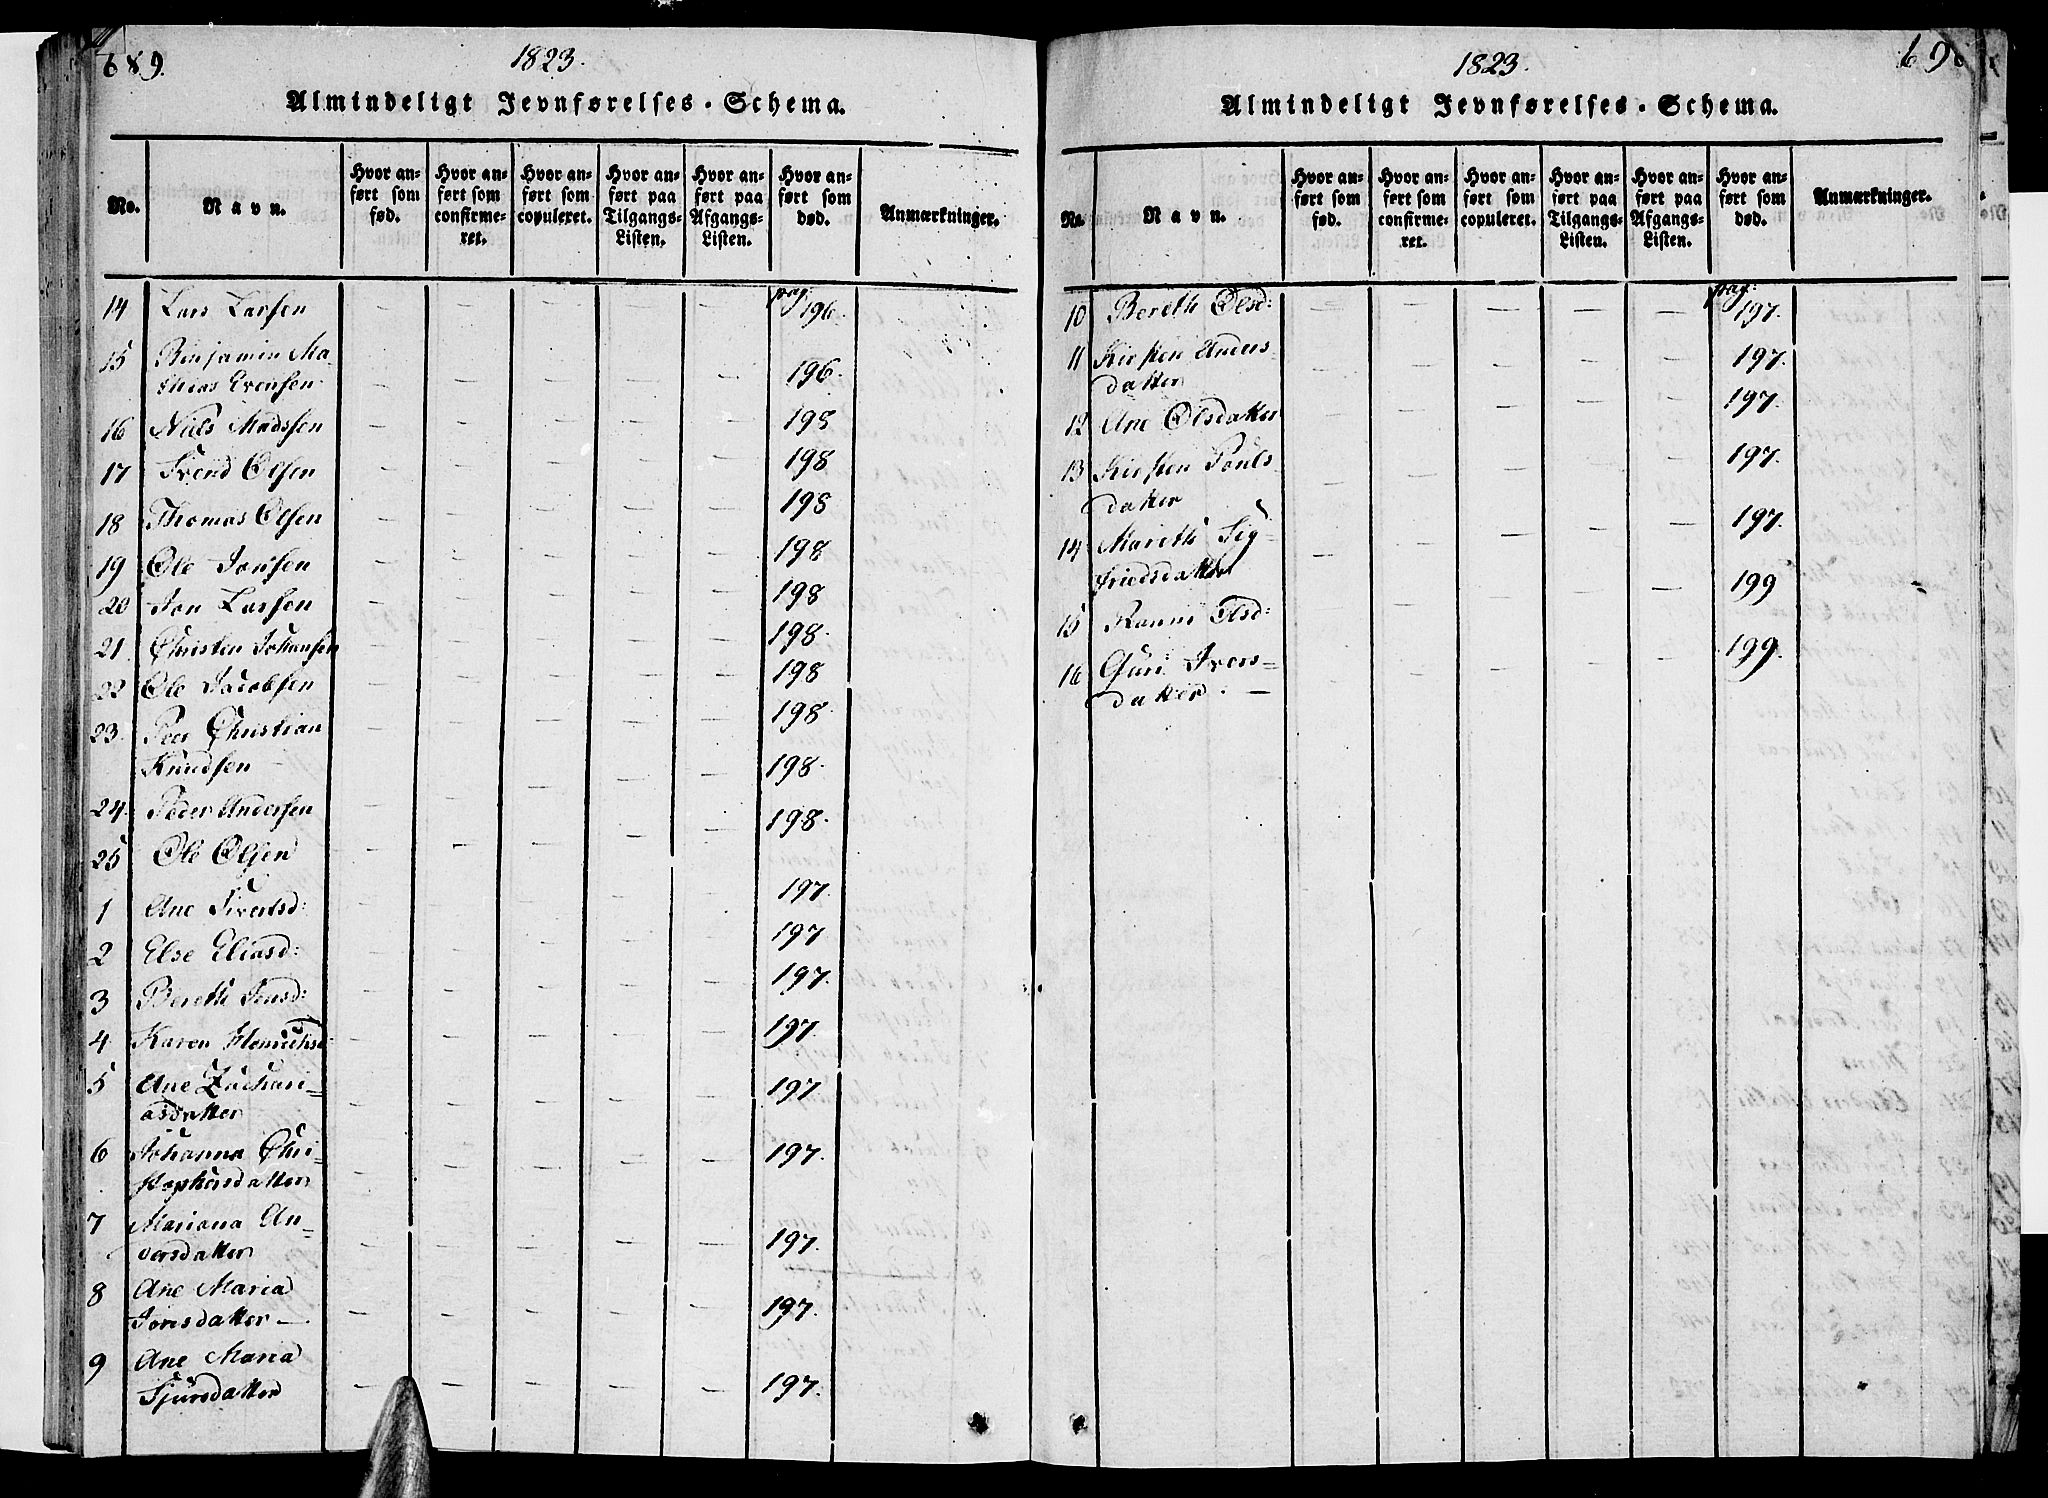 689.
1823.
Almindeligt Jevnførelses-Schema.
No.
Navn.
Hvor anført som fød.
Hvor anført som confirmeret.
Hvor anført som copuleret.
Hvor anført paa Tilgangs-Listen.
Hvor anført paa Afgangs-Listen.
Hvor anført som død.
Anmærkninger.
14 Lars Larsen — — — — — pag: 196.
15 Benjamin Ma-
thias Evensen — — — — — 196.
16 Niels Madssen — — — — — 198
17 Svend Olsen — — — — — 198
18 Thomas Olsen — — — — — 198
19 Ole Jonsen — — — — — 198
20 Jon Larsen — — — — — 198
21. Christen Johansen — — — — — 198.
22 Ole Jacobsen — — — — — 198
23. Peer Christian — — — — — 198.
Knudsen — 198.
24. Peder Andersen — — — — — 198.
25 Ole Olsen — — — — —
1 Ane Sivertsd: — — — — — 197.
2 Else Eliasd: — — — — — 197
3 Bereth Jensd: — — — — — 197.
4 Karen Henrichsd: — — — — — 197.
5 Ane Zachari-
asdatter — — — — — 197.
6 Johanna Chri-
stophersdatter — — — — — 197.
7 Mariana An-
dersdatter — — — — — 197.
8 Ane Maria
Jonsdatter — — — — — — 197.
9 Ane Maria
Sjursdatter — — — — — 197.
690
1823.
Almindeligt Jevnførelses-Schema.
No.
Navn.
Hvor anført som fød.
Hvor anført som confirmeret.
Hvor anført som copuleret.
Hvor anført paa Tilgangs-Listen.
Hvor anført paa Afgangs-Listen.
Hvor anført som død.
Anmærkninger.
10 Bereth Olsd: — — — — — pag: 197.
11 Kirsten Anders-
datter — — — — — 197.
12 Ane Olsdatter — — — — — 197.
13 Kirsten Pouls-
datter — — — — — 197.
14 Mareth Sig-
friedsdatter — — — — — 197.
15 Ranni Olsd: — — — — — 199
16 Guri Ivers-
datter. — — — — — — 199.